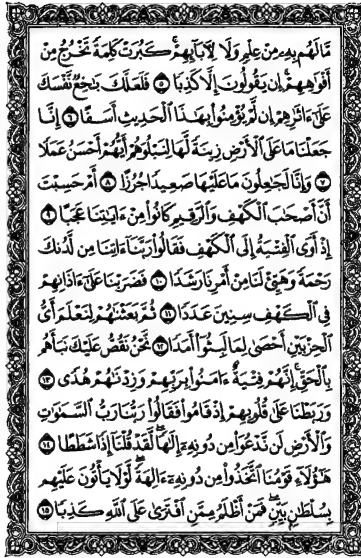 مَّا لَهُم بِهِۦ مِنْ عِلْمٍ وَلَا لِءَابَآئِهِمْ ۚ كَبُرَتْ كَلِمَةً تَخْرُجُ مِنْ
أَفْوَٰهِهِمْ ۚ إِن يَقُولُونَ إِلَّا كَذِبًا ٥ فَلَعَلَّكَ بَٰخِعٌ نَّفْسَكَ
عَلَىٰٓ ءَاثَٰرِهِمْ إِن لَّمْ يُؤْمِنُوا۟ بِهَٰذَا ٱلْحَدِيثِ أَسَفًا ٦ إِنَّا
جَعَلْنَا مَا عَلَى ٱلْأَرْضِ زِينَةً لَّهَا لِنَبْلُوَهُمْ أَيُّهُمْ أَحْسَنُ عَمَلًا
٧ وَإِنَّا لَجَٰعِلُونَ مَا عَلَيْهَا صَعِيدًا جُرُزًا ٨ أَمْ حَسِبْتَ
أَنَّ أَصْحَٰبَ ٱلْكَهْفِ وَٱلرَّقِيمِ كَانُوا۟ مِنْ ءَايَٰتِنَا عَجَبًا ٩
إِذْ أَوَى ٱلْفِتْيَةُ إِلَى ٱلْكَهْفِ فَقَالُوا۟ رَبَّنَآ ءَاتِنَا مِن لَّدُنكَ
رَحْمَةً وَهَيِّئْ لَنَا مِنْ أَمْرِنَا رَشَدًا ١٠ فَضَرَبْنَا عَلَىٰٓ ءَاذَانِهِمْ
فِى ٱلْكَهْفِ سِنِينَ عَدَدًا ١١ ثُمَّ بَعَثْنَٰهُمْ لِنَعْلَمَ أَىُّ
ٱلْحِزْبَيْنِ أَحْصَىٰ لِمَا لَبِثُوٓا۟ أَمَدًا ١٢ نَّحْنُ نَقُصُّ عَلَيْكَ نَبَأَهُم
بِٱلْحَقِّ ۚ إِنَّهُمْ فِتْيَةٌ ءَامَنُوا۟ بِرَبِّهِمْ وَزِدْنَٰهُمْ هُدًى ١٣
وَرَبَطْنَا عَلَىٰ قُلُوبِهِمْ إِذْ قَامُوا۟ فَقَالُوا۟ رَبُّنَا رَبُّ ٱلسَّمَٰوَٰتِ
وَٱلْأَرْضِ لَن نَّدْعُوَا۟ مِن دُونِهِۦٓ إِلَٰهًا ۖ لَّقَدْ قُلْنَآ إِذًا شَطَطًا ١٤
هَٰٓؤُلَآءِ قَوْمُنَا ٱتَّخَذُوا۟ مِن دُونِهِۦٓ ءَالِهَةً ۖ لَّوْلَا يَأْتُونَ عَلَيْهِم
بِسُلْطَٰنٍۭ بَيِّنٍ ۖ فَمَنْ أَظْلَمُ مِمَّنِ ٱفْتَرَىٰ عَلَى ٱللَّهِ كَذِبًا ١٥